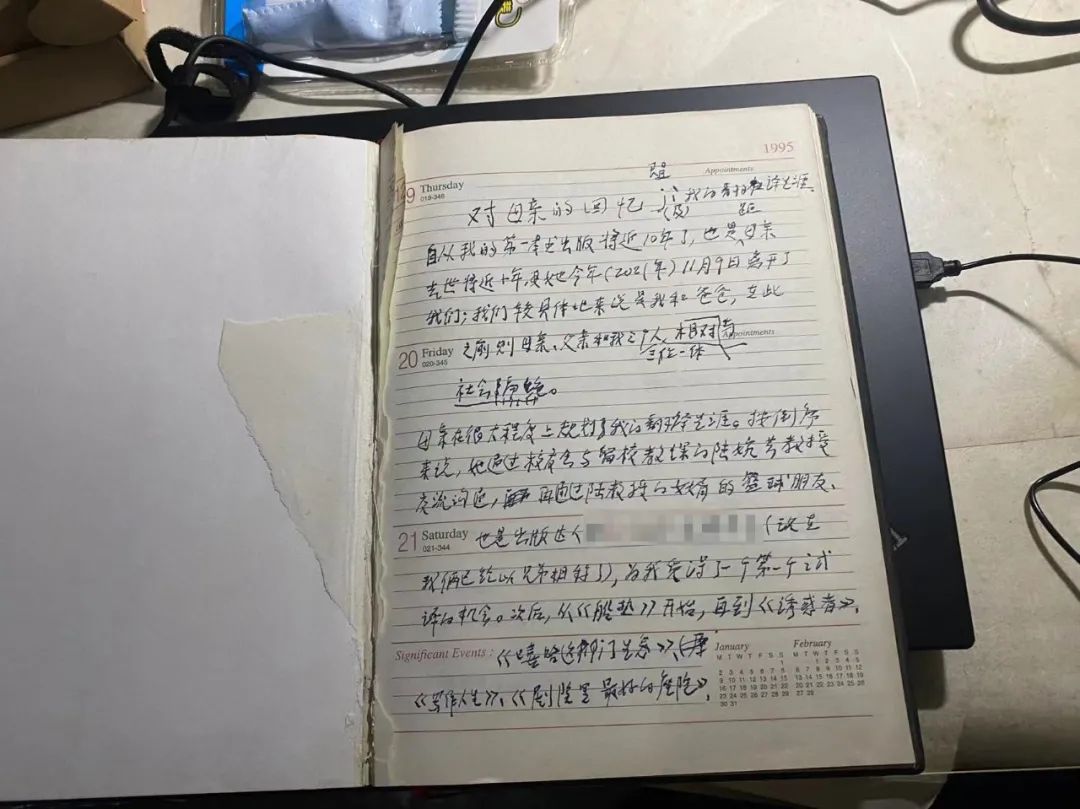 1995
Appointments
19 Thursday
019-346
对母亲的回忆
(及) 我的翻译生涯
自从我的第一本书出版将近10年了,也是母亲
去世将近十年,她今年(2021年)11月9日离开了
我们;我们较具体地来说是我和爸爸,在此
20 Friday
020-345
之前则母亲、父亲和我三个人,相对与
Appointments
三位一体
社会隔绝。
母亲在很大程度上规划了我的翻译生涯。按倒序
来说,她通过校友会与留校教课的陆教授
交流沟通,再通过陆教授的女婿的篮球朋友、
21 Saturday
021-344
也是出版达人 (现在
我俩已经以兄弟相称了),为我争得了一个第一个试
译的机会。次后,从《脏垫》开始,再到《诱惑者》、
Significant Events :
《写作人生》、《剧院里最好的座位》,
January
M T W T F S S
1
2 3 4 5 6 7 8
9 10 11 12 13 14 15
16 17 18 19 20 21 22
23 24 25 26 27 28 29
30 31
February
M T W T F S S
1 2 3 4 5
6 7 8 9 10 11 12
13 14 15 16 17 18 19
20 21 22 23 24 25 26
27 28